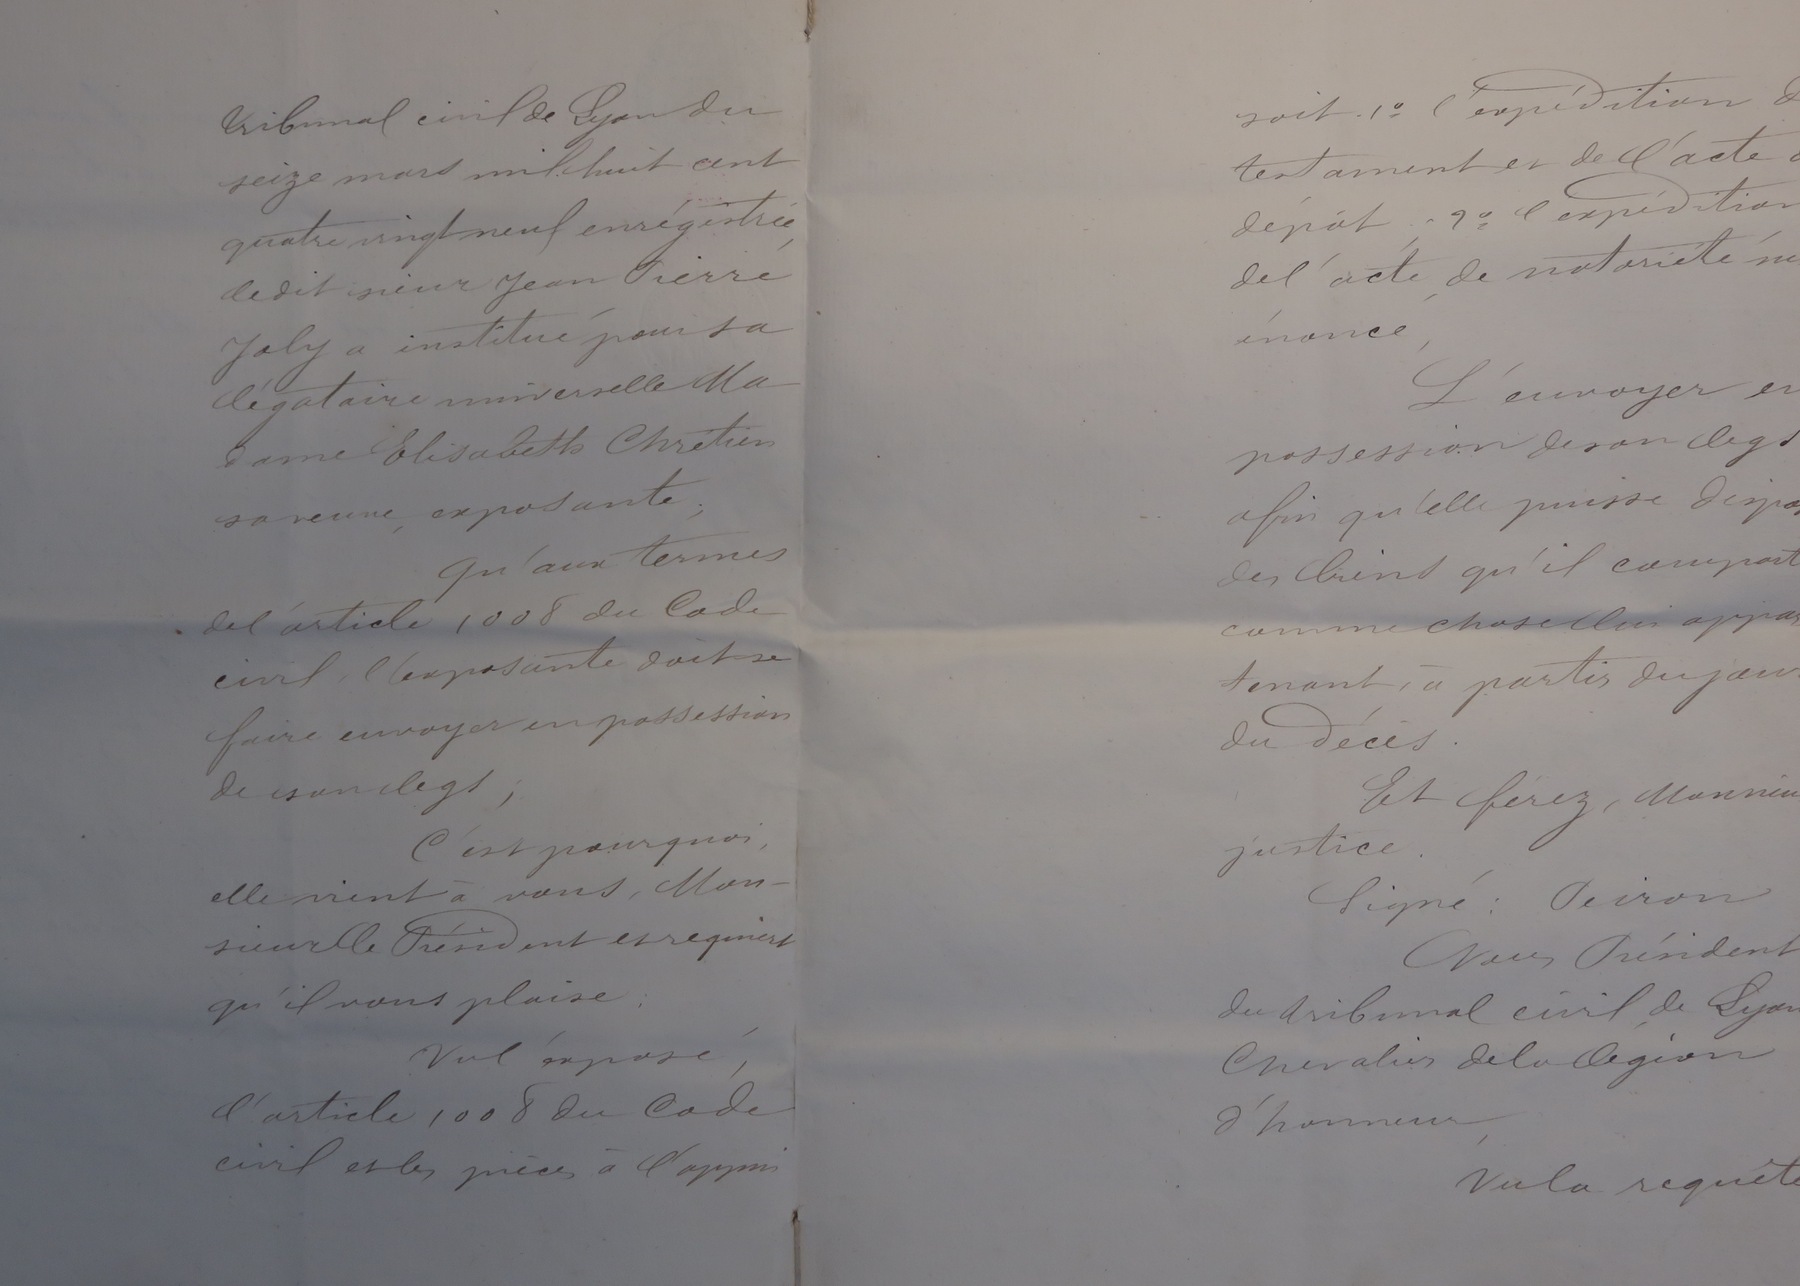 tribunal civil de Lyon du
seize mars mil huit cent
quatre vingt neuf enrégistrée,
ledit sieur Jean Pierre
Joly a institué pour sa
légataire universelle Ma
dame Elisabeth Chrétien
sa veuve, exposante;
Qu'aux termes
de l'article 1008 du Code
civil, l'exposante doit se
faire envoyer en possession
de son legs;
C'est pourquoi,
elle vient à vous, Mon-
sieur le Président et requiert
qu'il vous plaise:
Vu l'exposé,
l'article 1008 du Code
civil et les pièces à l'appui
soit 1º l'expédition
testament et de l'acte
dépôt; 2º l'expédition
de l'acte de notoriété
énoncé,
L'envoyer en
possession de son legs
afin qu'elle puisse dispos
des biens qu'il comport
comme chose lui appar
tenant, à partir du jour
du décès.
Et ferez, Monsieu
justice.
Signé: Peiron
Nous Président
du tribunal civil de Lyon
Chevalier de la Légion
d'honneur,
Vu la requête